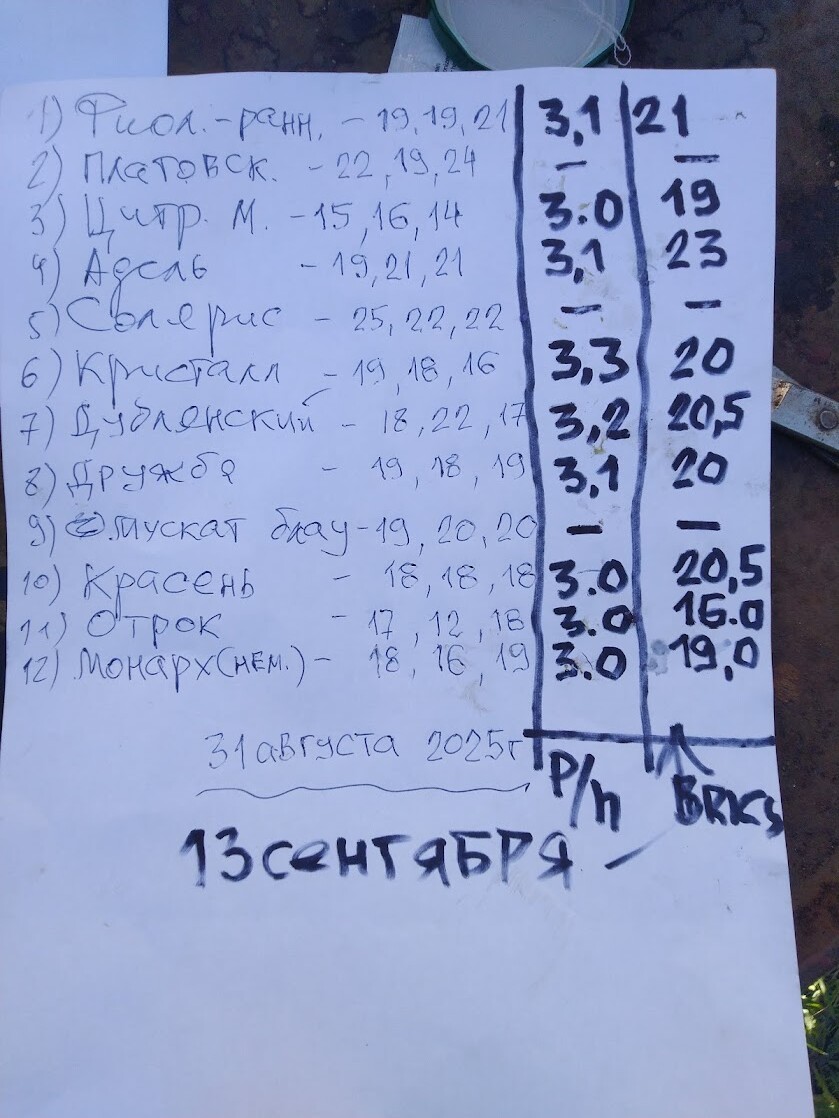 1) Фиол.-ранн. - 19,19,21 3,1 21
2) Платовск. - 22,19,24 - -
3) Цитр. М. - 15,16,14 3.0 19
4) Адель - 19,21,21 3,1 23
5) Солярис - 25,22,22 - -
6) Кристалл - 19,18,16 3,3 20
7) Дублянский - 18,22,17 3,2 20,5
8) Дружба - 19,18,19 3,1 20
9) Мускат блау - 19,20,20 - -
10) Красень - 18,18,18 3.0 20,5
11) Отрок - 17,12,18 3.0 16.0
12) Монарх(нем.) - 18,16,19 3.0 19,0
31 августа 2025г
P/h BRKS
13 сентября -